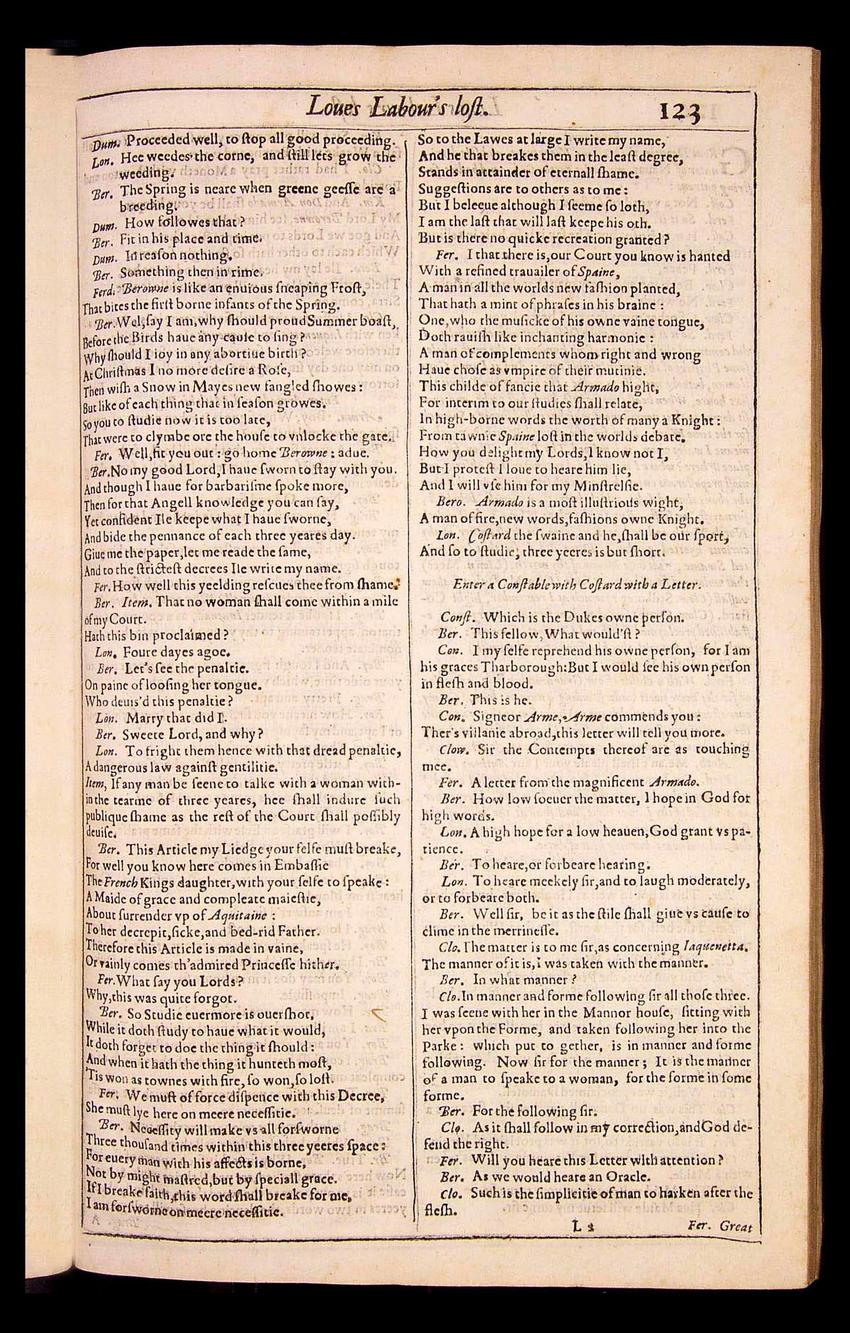 Loues Labour's lost. 123
Dum. Proceeded well, to stop all good proceeding.
Lon. Hee weedes the corne, and still lets grow the
weeding.
Ber. The Spring is neare when greene geesse are a
breeding.
Dum. How followes that?
Ber. Fit in his place and time.
Dum. In reason nothing.
Ber. Something then in rime.
Ferd. Berowne is like an enuious sneaping Frost,
That bites the first borne infants of the Spring.
Ber. Wel, say I am, why should proud Summer boast,
Before the Birds haue any cause to sing?
Why should I ioy in any abortiue birth?
At Christmas I no more desire a Rose,
Then wish a Snow in Mayes new fangled showes:
But like of each thing that in season growes.
So you to studie now it is too late,
That were to clymbe ore the house to vnlocke the gate.
Fer. Well, fit you out: go home Berowne: adue.
Ber. No my good Lord, I haue sworn to stay with you.
And though I haue for barbarisme spoke more,
Then for that Angell knowledge you can say,
Yet confident Ile keepe what I haue sworne,
And bide the pennance of each three yeares day.
Giue me the paper, let me reade the same,
And to the strictest decrees Ile write my name.
Fer. How well this yeelding rescues thee from shame.
Ber. Item. That no woman shall come within a mile
of my Court.
Hath this bin proclaimed?
Lon. Foure dayes agoe.
Ber. Let's see the penaltie.
On paine of loosing her tongue.
Who deuis'd this penaltie?
Lon. Marry that did I.
Ber. Sweete Lord, and why?
Lon. To fright them hence with that dread penaltie,
A dangerous law against gentilitie.
Item, If any man be seene to talke with a woman with-
in the tearme of three yeares, hee shall indure such
publique shame as the rest of the Court shall possibly
deuise.
Ber. This Article my Liedge your selfe must breake,
For well you know here comes in Embassie
The French Kings daughter, with your selfe to speake:
A Maide of grace and compleate maiestie,
About surrender vp of Aquitaine:
To her decrepit, sicke, and bed-rid Father.
Therefore this Article is made in vaine,
Or vainly comes th'admired Princesse hither.
Fer. What say you Lords?
Why, this was quite forgot.
Ber. So Studie euermore is ouershot,
While it doth study to haue what it would,
It doth forget to doe the thing it should:
And when it hath the thing it hunteth most,
'Tis won as townes with fire, so won, so lost.
Fer. We must of force dispence with this Decree,
She must lye here on meere necessitie.
Ber. Necessity will make vs all forsworne
Three thousand times within this three yeeres space:
For euery man with his affects is borne,
Not by might mastred, but by speciall grace.
If I breake faith, this word shall breake for me,
I am forsworne on meere necessitie.
So to the Lawes at large I write my name,
And he that breakes them in the least degree,
Stands in attainder of eternall shame.
Suggestions are to others as to me:
But I beleeue although I seeme so loth,
I am the last that will last keepe his oth.
But is there no quicke recreation granted?
Fer. I that there is, our Court you know is hanted
With a refined trauailer of Spaine,
A man in all the worlds new fashion planted,
That hath a mint of phrases in his braine:
One, who the musicke of his owne vaine tongue,
Doth rauish like inchanting harmonie:
A man of complements whom right and wrong
Haue chose as vmpire of their mutinie.
This childe of fancie that Armado hight,
For interim to our studies shall relate,
In high-borne words the worth of many a Knight:
From tawnie Spaine lost in the worlds debate.
How you delight my Lords, I know not I,
But I protest I loue to heare him lie,
And I will vse him for my Minstrelsie.
Bero. Armado is a most illustrious wight,
A man of fire, new words, fashions owne Knight.
Lon. Costard the swaine and he, shall be our sport,
And so to studie, three yeeres is but short.
Enter a Constable with Costard with a Letter.
Const. Which is the Dukes owne person.
Ber. This fellow, What would'st?
Con. I my selfe reprehend his owne person, for I am
his graces Tharborough: But I would see his own person
in flesh and blood.
Ber. This is he.
Con. Signeor Arme, Arme commends you:
Ther's villanie abroad, this letter will tell you more.
Clow. Sir the Contempts thereof are as touching
mee.
Fer. A letter from the magnificent Armado.
Ber. How low soeuer the matter, I hope in God for
high words.
Lon. A high hope for a low heauen, God grant vs pa-
tience.
Ber. To heare, or forbeare hearing.
Lon. To heare meekely sir, and to laugh moderately,
or to forbeare both.
Ber. Well sir, be it as the stile shall giue vs cause to
clime in the merrinesse.
Clo. The matter is to me sir, as concerning Iaquenetta.
The manner of it is, I was taken with the manner.
Ber. In what manner?
Clo. In manner and forme following sir all those three.
I was seene with her in the Mannor house, sitting with
her vpon the Forme, and taken following her into the
Parke: which put to gether, is in manner and forme
following. Now sir for the manner; It is the manner
of a man to speake to a woman, for the forme in some
forme.
Ber. For the following sir.
Clo. As it shall follow in my correction, and God de-
fend the right.
Fer. Will you heare this Letter with attention?
Ber. As we would heare an Oracle.
Clo. Such is the simplicitie of man to harken after the
flesh.
L 2 Fer. Great